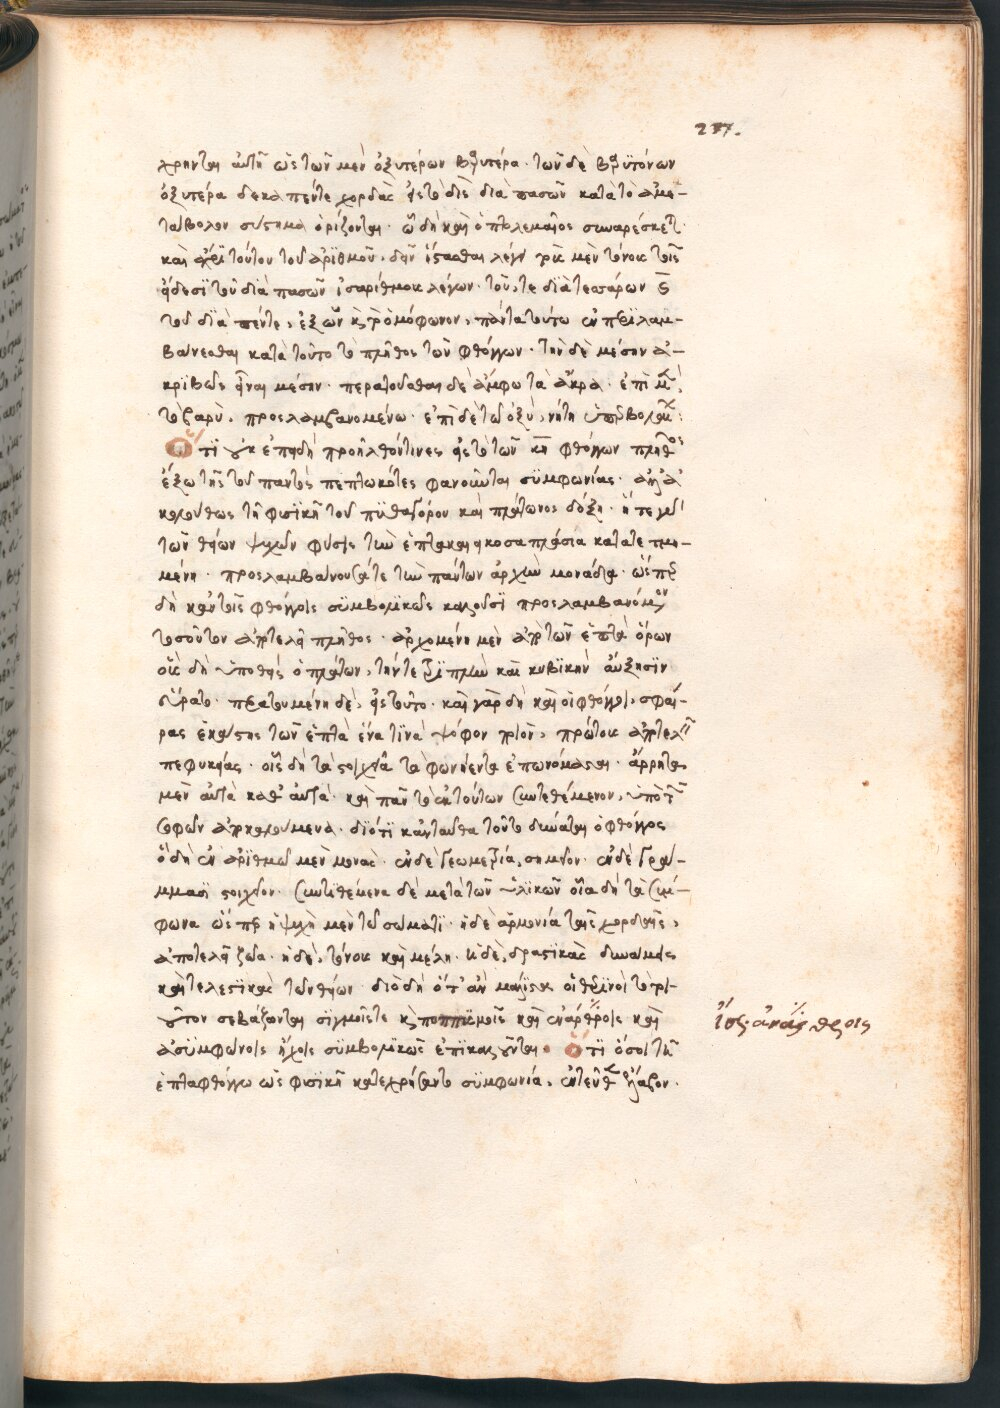 237.
χρηνται αυτῆ ὡς τῶν μὲν ὀξυτέρων βαρυτέρα· τῶν δὲ βαρυτόνων
ὀξυτέρα δεκαπέντε χορδὰς εἰς τὸ δὶς διὰ πασῶν κατὰ τὸ ἀμε-
τάβολον σύστημα ὁρίζονται· ὧ δὴ καὶ ὁ πτολεμαῖος συναρέσκεται
καὶ τούτου τοῦ ἀριθμοῦ· δεῖν ἵστασθαι λέγει μὲν τόνους τοῖς
εἴδεσι τοῦ διὰ πασῶν ἰσαρίθμους λέγων· τοῦ, τε διὰ τεσσάρων ϗ
τοῦ διὰ πέντε, ἐξ ὧν ὁμόφωνον, πάντα τούτω ἐμπεριλαμ-
βάνεσθαι κατὰ τοῦτο τὸ πλῆθος τῶν φθόγγων· τὴν δὲ μέσην ἀ-
κριβῶς εἶναι μέσην· περατοῦσθαι δὲ ἄμφω τὰ ἄκρα· ἐπὶ μὲν
τὸ βαρὺ, προσλαμβανομένω· ἐπὶ δὲ τὸ ὀξὺ, νήτη ὑπερβολαίων:
Ὅτι οὐκ ἐπειδὴ προῆλθόν τινες εἰς τὸ τῶν κη φθόγγων πλῆθος
ἔξω τῆς τοῦ παντὸς πεπτωκότες φανοῦνται συμφωνίας· ἀλλ' ἀ
κολούθως τῆ φυσικῆ τοῦ πυθαγόρου καὶ πλάτωνος δόξη· ἥ τε γὰρ
τῶν θείων ψυχῶν φύσις τὴν ἑπτακαιεικοσαπλάσια κατατετμη-
μένη· προσλαμβάνουσά τε τὴν πάντων ἀρχὴν μονάδα· ὥσπερ
δὴ κἀν τοῖς φθόγγοις συμβολικῶς καλοῦσι προσλαμβανόμενον
τοσοῦτον ἀποτελεῖ πλῆθος· ἀρχομένη μὲν ἀπὸ τῶν ἑπτὰ ὅρων
οὓς δὴ ὑποθεὶς ὁ πλάτων, τήν τε τριπλῆν καὶ κυβικὴν αὔξησιν
εὕρατο· περατουμένη δὲ, εἰς τοῦτο· καὶ γὰρ δὴ καὶ οἱ φθόγγοι, σφαί-
ρας ἑκάστης τῶν ἑπτὰ ἕνα τινὰ ψόφον ποιὸν, πρώτους ἀποτελεῖν
πεφυκυίας· οἷς δὴ τὰ στοιχεῖα τὰ φωνήεντα ἐπωνόμασται· ἄρρητα
μὲν αὐτὰ καθ' αὑτὰ· καὶ πᾶν τὸ ἐκ τούτων συντεθειμένον, ὑπὸ τῶν
σοφῶν ἀποκαλούμενα· διότι κἀνταῦθα τοῦτο δύναται ὁ φθόγγος
ὃ δὴ ἐν ἀριθμῶ μὲν μονὰς· ἐν δὲ γεωμετρία, σημεῖον· ἐν δὲ γρά-
μμασι στοιχεῖον· συντιθέμενα δὲ μετὰ τῶν ὑλικῶν οἷα δὴ τὰ σύμ-
φωνα ὥσπερ ἡ ψυχὴ μὲν τῶ σώματι· ἡ δὲ ἁρμονία ταῖς χορδαῖς,
ἀποτελεῖ ζῶα· ἡ δὲ, τόνους καὶ μέλη· ἡ δὲ, δραστικὰς δυνάμεις
καὶ τελεστικὰς τῶν θείων· διὸ δὴ ὅταν μάλιστα οἱ θεῖοι τὸ τοι-
οῦτον σεβάζωνται σιγμοῖς τε ϗ ποππυσμοῖς καὶ ἐνάρθροις καὶ
ἀσυμφώνοις ἤχοις συμβολικῶς ἐπικαλοῦνται· Ὅτι ὅσοι τῆ
ἴσως ἀνάρθροις
ἑπταφθόγγω ὡς φυσικῆ κατεχρήσαντο συμφωνία, ἐντεῦθεν ἔλαβον·